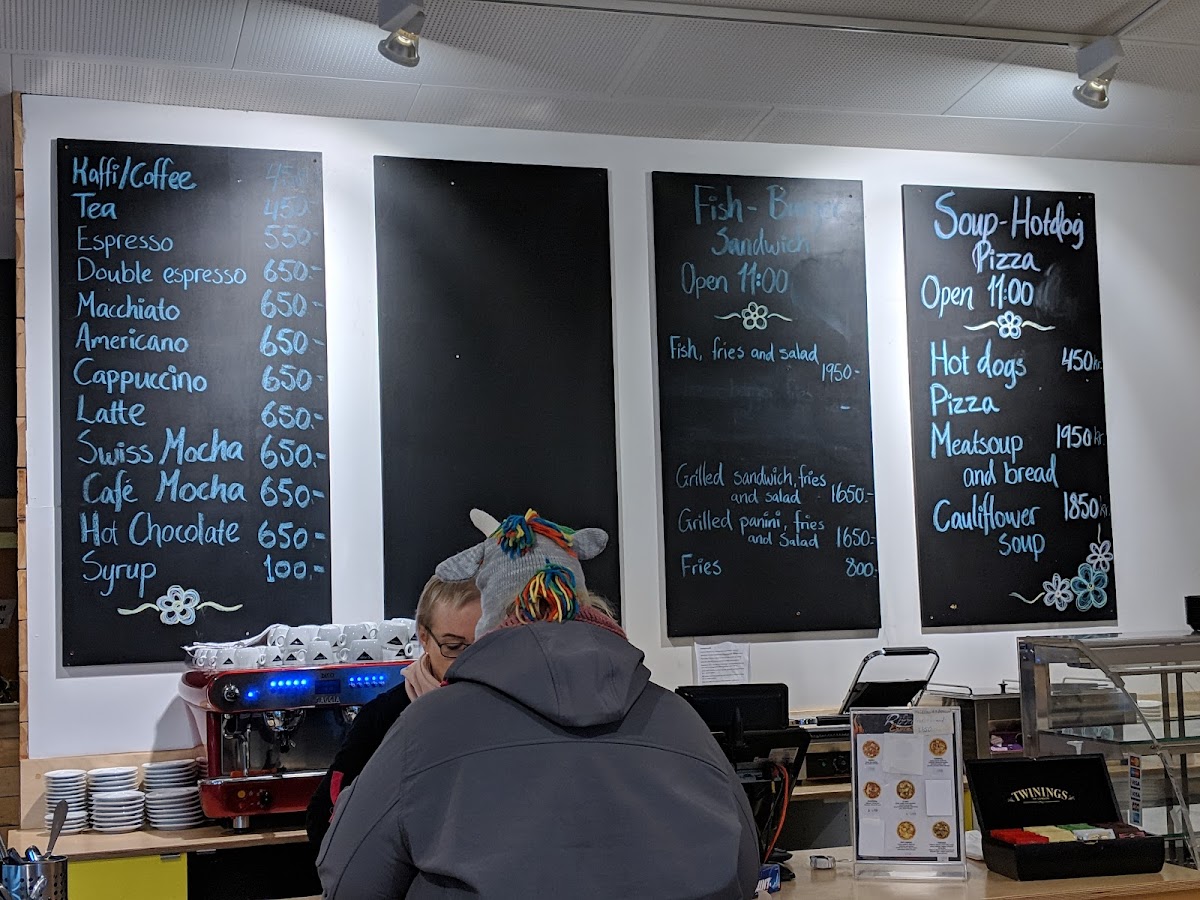 Kaffi/Coffee 450.-
Tea 450.-
Espresso 550.-
Double espresso 650.-
Macchiato 650.-
Americano 650.-
Cappuccino 650.-
Latte 650.-
Swiss Mocha 650.-
Café Mocha 650.-
Hot Chocolate 650.-
Syrup 100.-
Fish - Burger
Sandwich
Open 11:00
Fish, fries and salad
1950.-
Grilled sandwich, fries
and salad 1650.-
Grilled panini, fries
and salad 1650.-
Fries 800.-
Soup-Hotdog
Pizza
Open 11:00
Hot dogs 450kr.
Pizza
Meatsoup 1950kr.
and bread
Cauliflower 1850kr.
soup
TWININGS